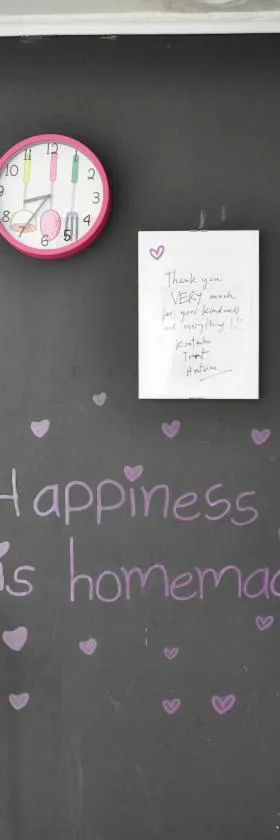 11 12 1
10 2
9 3
8 4
7 6 5
Thank you
VERY much
for your kindness
and everything !!!
Trent
Antoine
Happiness
is homemad